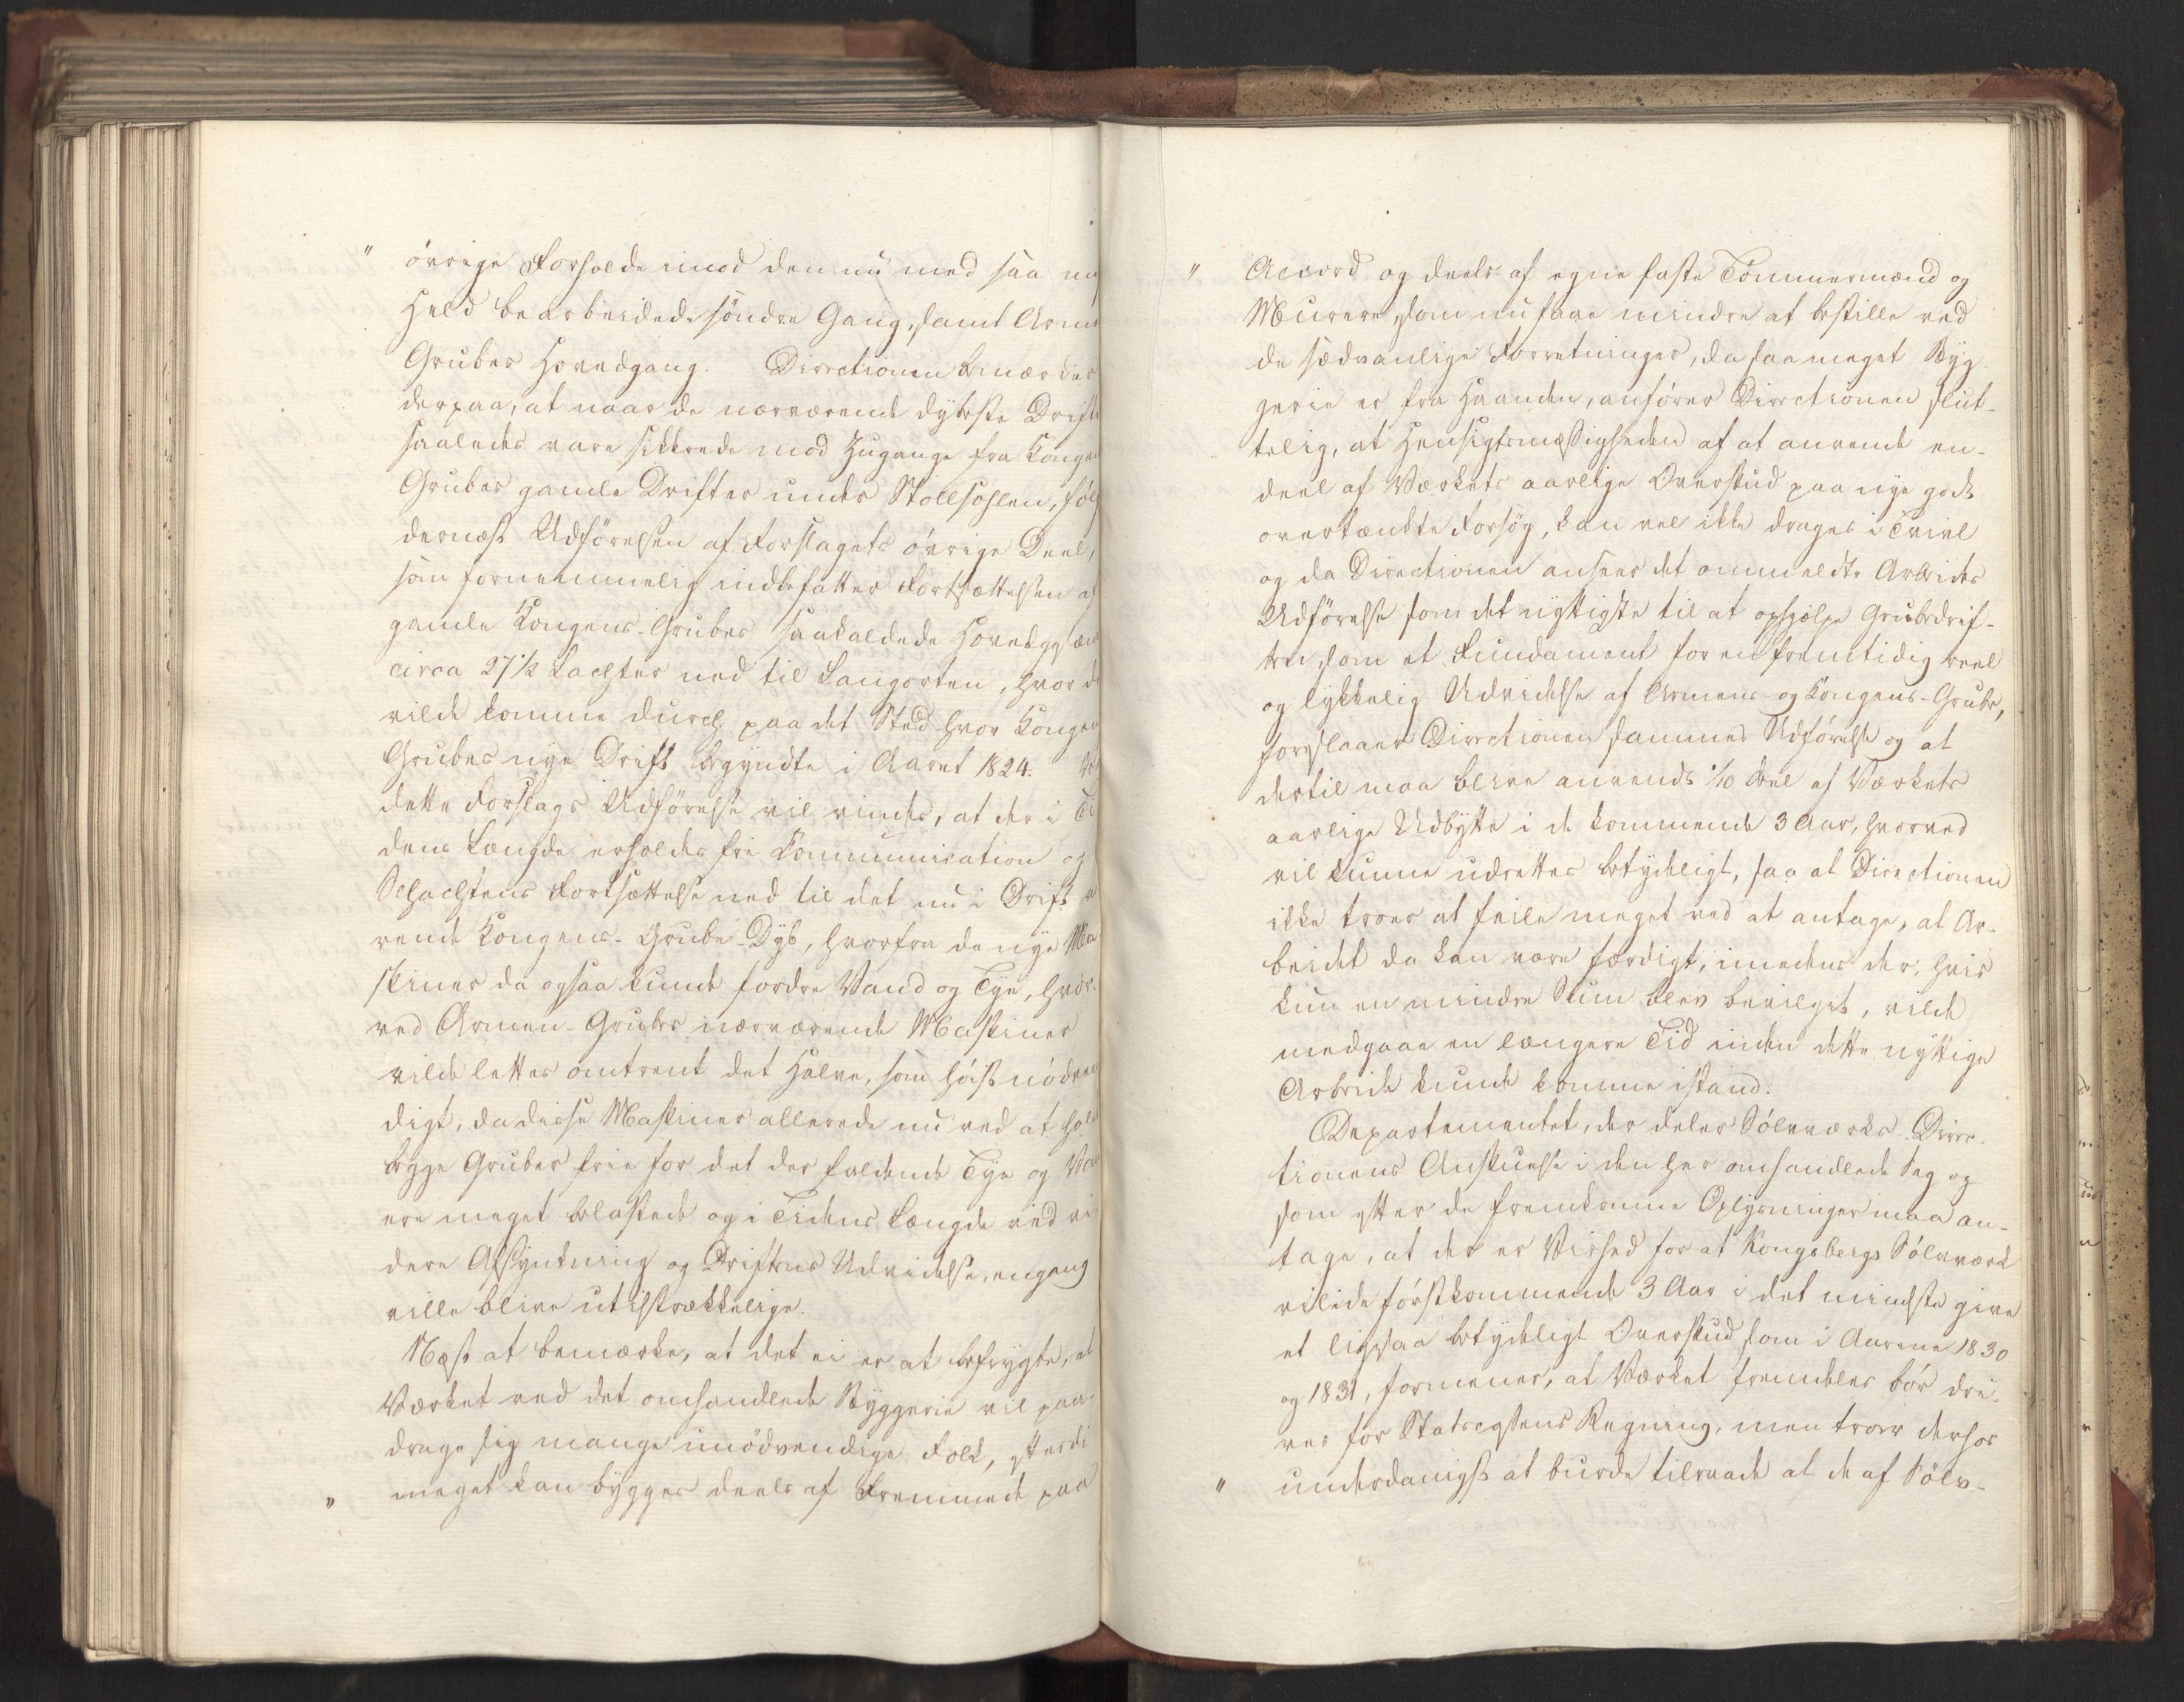 " övrige Forholde imod den nu med saa
Held bearbeidede söndre Gang, samt Armen
Grubes Hovedgang. Directionen bemærker
derpaa, at naar de nærværende dybeste Drifte
saaledes vare sikkrede mod Zugange fra Kongen
Grubes gamle Drifter under Stollsohlen, föl
dernæst Udförelsen af Forslagets övrige Deel,
som fornemmelig indbefatter Fortsættelsen af
gamle Kongens-Grubes saakaldede
circa 27½ Lachter ned til Langorten, hvor d
vilde komme durch paa det Sted hvor Kongen
Grubes nye Drift begyndte i Aaret 1824. Ve
dette Forslags Udförelse vil vindes, at der i Ti
dens Længde erholdes fri Communication og
Schachtens Fortsættelse ned til det nu i Drift v
rende Kongens-Grube-Dyb, hvorfra de nye Ma
skiner da ogsaa kunde fordre Vand og Tye, hvor-
ved Armen-Grubes nærværende Maskiner
vilde lettes omtrent det Halve, som höist nödven
digt, da disse Maskiner allerede nu ved at hol
begge Gruber frie for det der faldende Tye og Va
ere meget belastede og i Tidens Længde ved vi
dere Afsynkning og Driftens Udvidelse, engang
ville blive utilstrækkelige.
Næst at bemærke, at det ei er at befrygte, at
Værket ved det omhandlede Byggerie vil paa-
drage sig mange unödvendige Folk, efterdi
" meget kan bygges deels af Fremmede paa
" Accord og deels af egne faste Tömmermænd og
Murere, som nu faae mindre at bestille ved
de sædvanlige Forretninger, da saa meget Byg-
gerie er fra Haanden, anförer Directionen slut-
telig, at Hensigtsmæssigheden af at anvende en-
deel af Værkets aarlige Overskud paa nye godt
overtænkte Forsög, kan vel ikke drages i Tvivl
og da Directionen ansees det ommeldte Arbeides
Udförelse som det nyttigste til at ophjelpe Grubedrif-
ten, som et Fundament for en fremtidig reel
og lykkelig Udvidelse af Armens- og Kongens-Grube,
foreslaaer Directionen sammes Udförelse og at
dertil maa blive anvendt 1/10 deel af Værkets
aarlige Udbytte i de kommende 3 Aar, hvorved
vil kunne udrettes betydeligt, saa at Directionen
ikke troer at feile meget ved at antage, at Ar-
beidet da kan være færdigt, imedens der, hvis
kun en mindre Sum blev bevilget, vilde
medgaae en længere Tid inden dette nyttige
Arbeide kunde komme istand.
Departementet, der deler Sölvværks-Direc-
tionens Anskuelse i den her omhandlede Sag og
som efter de fremkomne Oplysninger maa an-
tage, at der er Vished for at Kongsbergs Sölvværk
vil i de förstkommende 3 Aar i det mindste give
et ligesaa betydeligt Overskud som i Aarene 1830
og 1831, formener, at Værket fremdeles bör dri-
ves for Statscassens Regning, men troer derhos
" underdanigst at burde tilraade at de af Sölv-